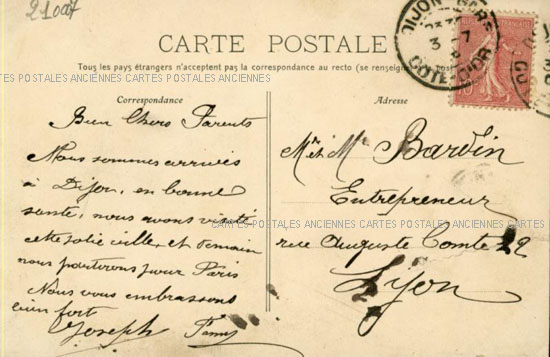 21007
CARTE POSTALE
Tous les pays étrangers n'acceptent pas la correspondance au recto (se renseigner
CARTES POSTALES ANCIENNES CARTES POSTALES ANCIENNES CARTES POSTALES ANCIENNES CARTES
Correspondance
Bien Chers Parents
Nous sommes arrivés
à Dijon, en bonne
santé, nous avons visité
cette jolie ville, et demain
nous partirons pour Paris
Nous vous embrassons
bien fort
Joseph Fanny
Adresse
Mr et Me Bardin
Entrepreneur
CARTES POSTALES ANCIENNES CARTES POSTALES ANCIENNES
rue Auguste Comte 22
Lyon
DIJON GARE
3 7
COTE-D'OR